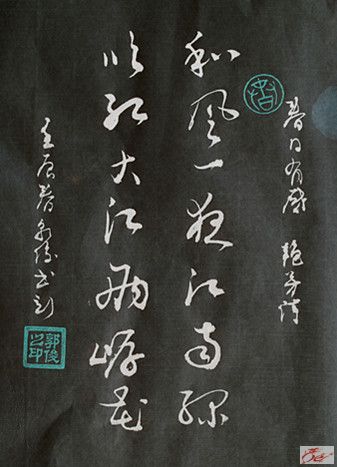 春日有感 诗
和风一夜江南绿
吹红大江两岸花
壬辰春 书刻
郭俊之印